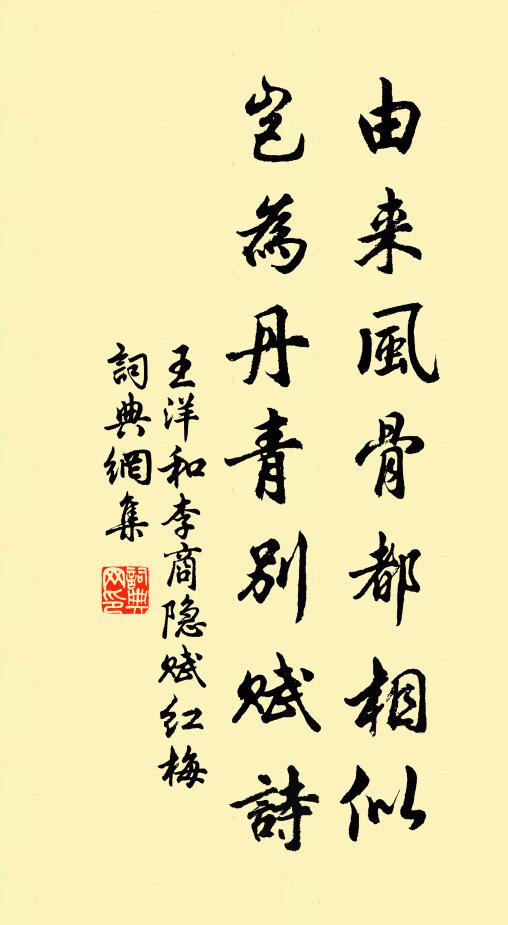 由来風骨都相似
岂為丹青别赋詩
王洋和李商隐赋红梅
詞典網集
詞典
网印